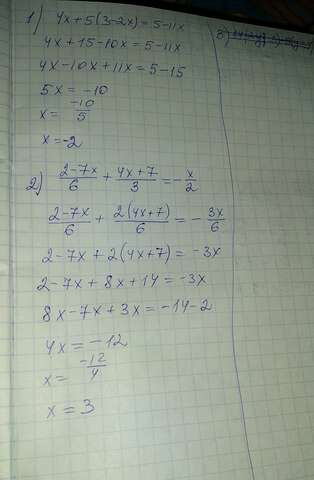 1) 4x+5(3-2x)=5-11x
4x+15-10x=5-11x
4x-10x+11x=5-15
5x=-10
x= -10/5
x=-2
2) (2-7x)/6 + (4x+7)/3 = -x/2
(2-7x)/6 + 2(4x+7)/6 = - 3x/6
2-7x+2(4x+7)=-3x
2-7x+8x+14=-3x
8x-7x+3x=-14-2
4x=-12
x= -12/4
x=3
3)